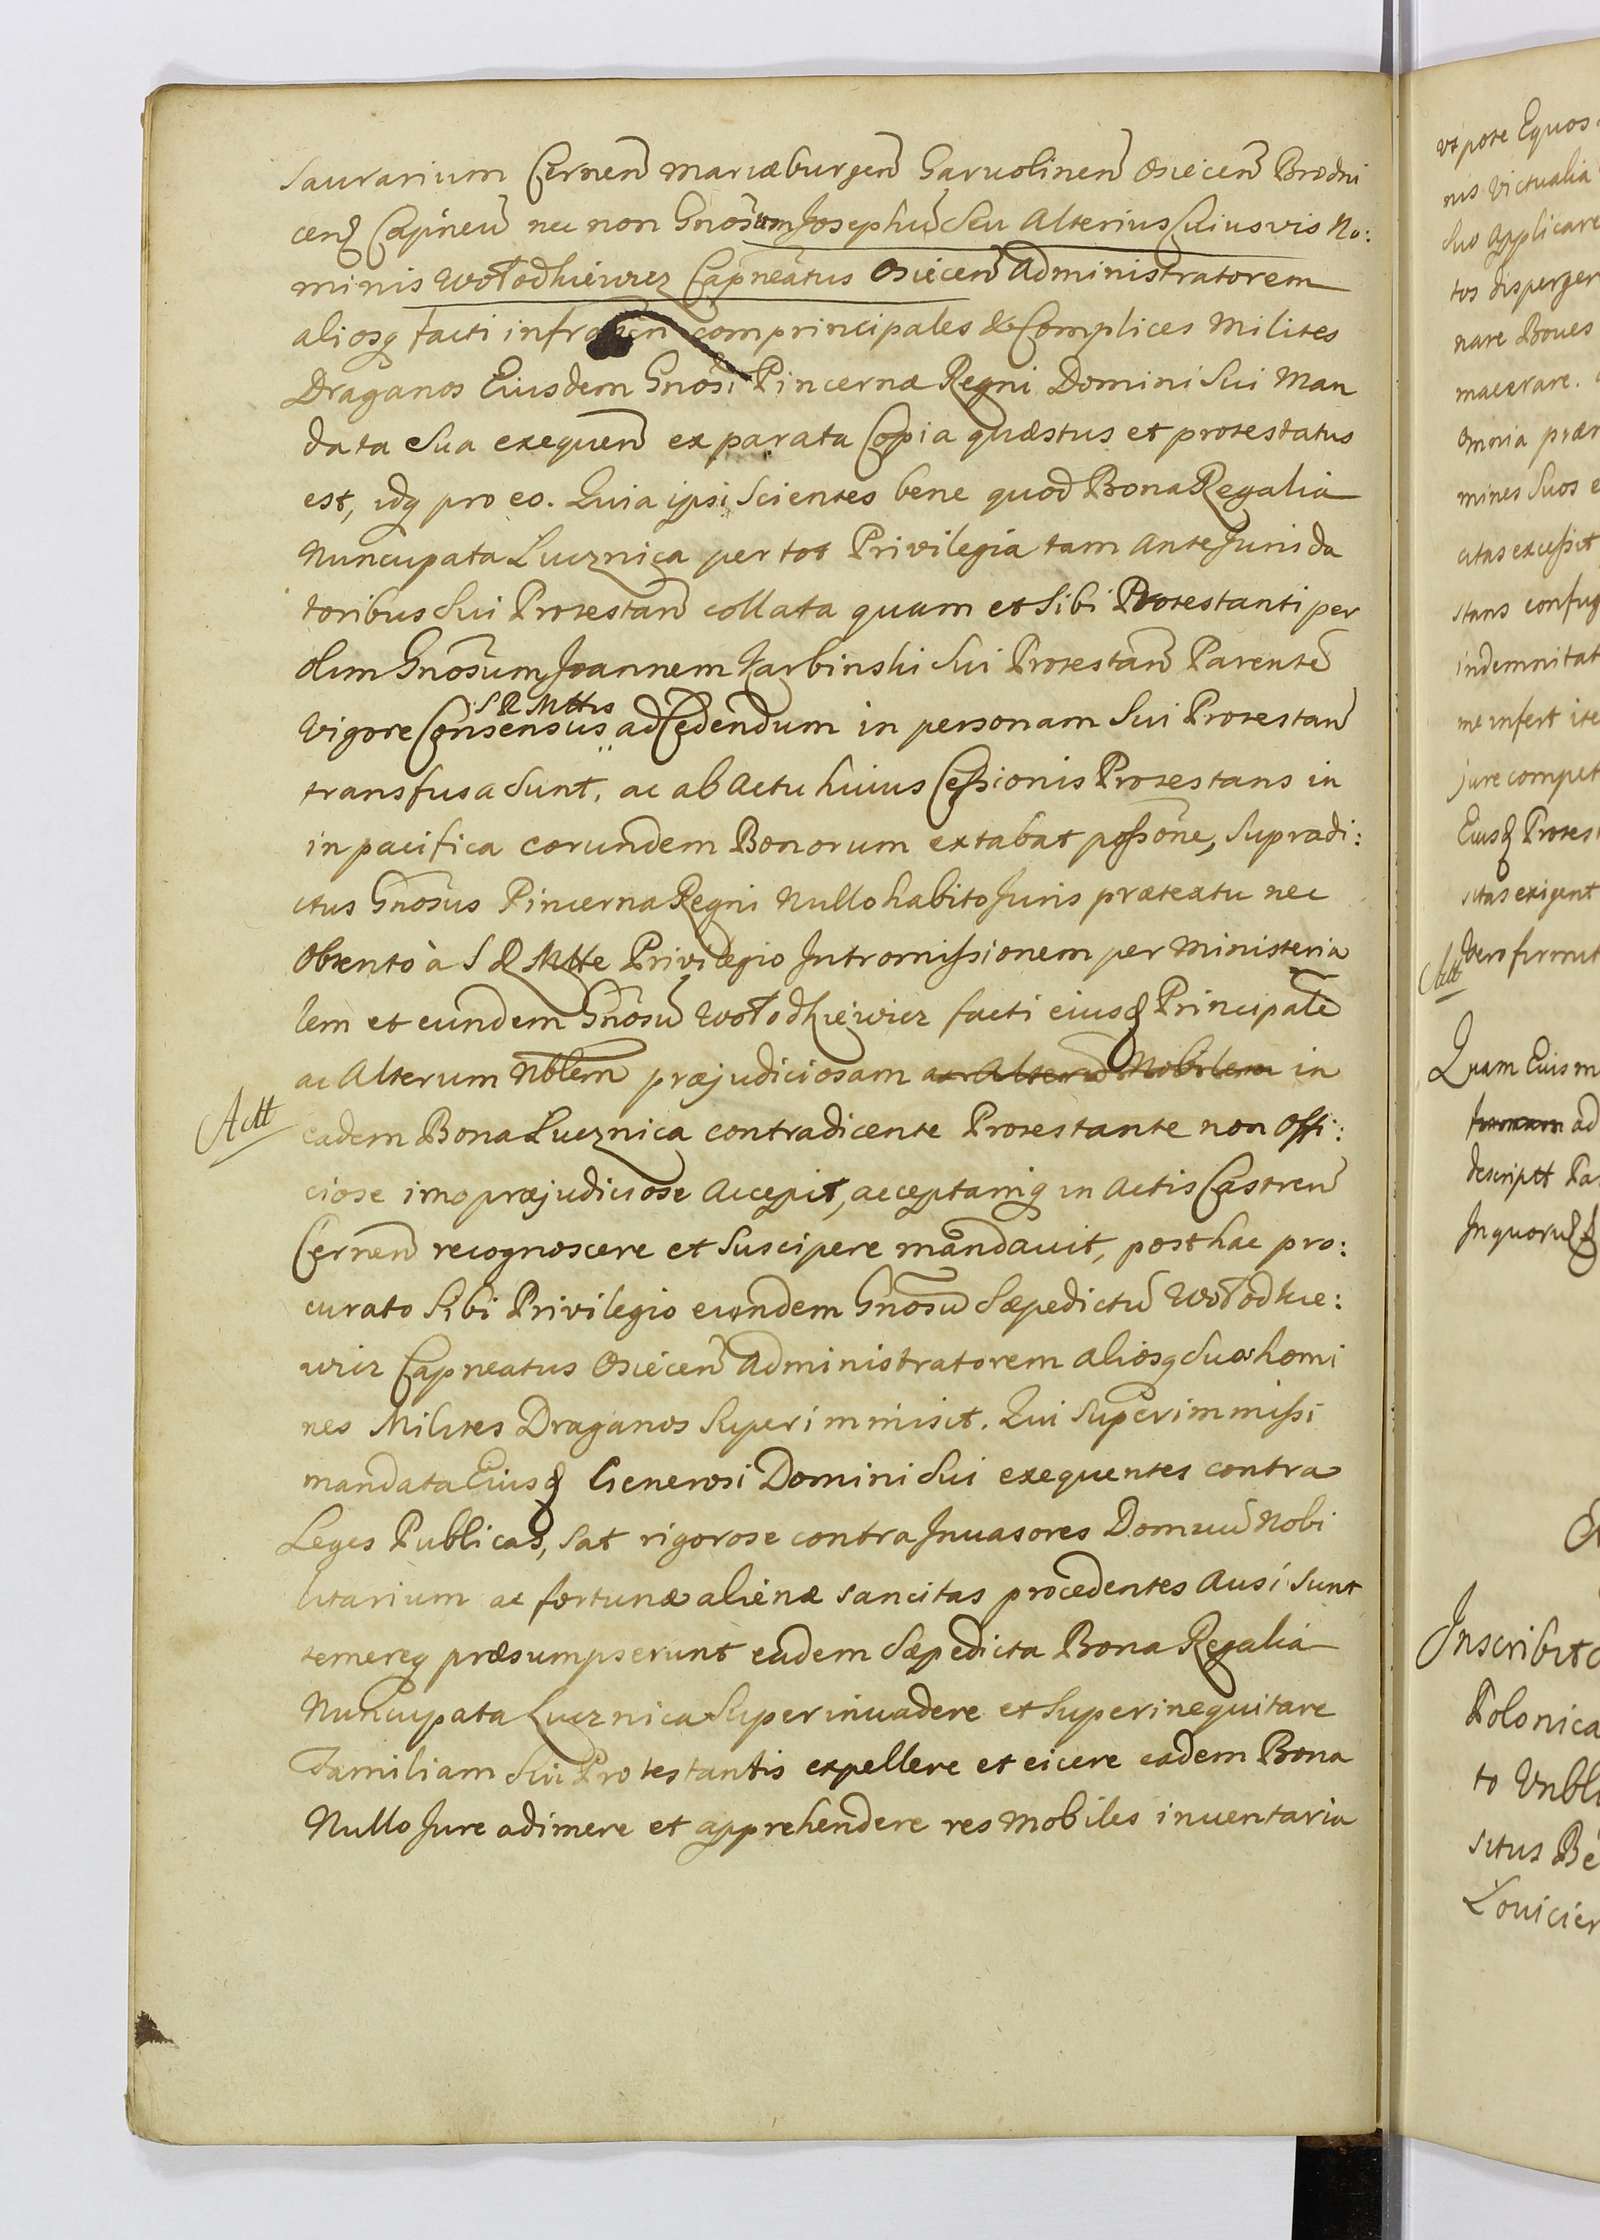 saurarium Cernen̄ Mariæburgen̄ Garuolinen̄ Osiecen̄ Brodni
cenꝫ Capneū nec non Gnosum Josephū Seu Alterius Cuiusvis No:
minis Wołodkiewicz Capneatus Osiecen̄ Administratorem
aliosq facti comprincipales & Complices Milites
Draganos Eiusdem Gnosi Pincernæ Regni Domini Sui Man
data Sua exequen̄ ex parata Copia quæstus et protestatus
est, idq pro eo. Quia ipsi Scientes bene quod Bona Regalia
Nuncupata Lucznica per tot Privilegia tam Antesunida
toribus Sui Protestan̄ collata quam et Sibi Protestanti per
olim Gnosum Joannem Zarbinski Sui Protestan̄ Parentē
S R Mttis
Vigore Consensus ad Cedendum in personam Sui Protestan̄
transfusa Sunt, ac ab Actu huius Cessionis Protestans in
in pacifica eorundem Bonorum extabat possone, Supradi:
ctus Gnosus Pincerna Regni Nullo habito Juris prætextu nec
Obtento à S R Mtte Privilegio Intromissionem per Ministeria
lem et eundem Gnosū Wołodkiewicz facti eiusꝫ Principalē
ac Alterum Nblem præjudiciosam ac Alterū Nobilem in
Actt
eadem Bona Lucznica contradicente Protestante non Offi:
ciose imo præjudiciose Accepit, acceptamq in Actis Castren̄
Cernen̄ recognoscere et Suscipere mandauit, posthac pro:
curato Sibi Privilegio eundem Gnosū Sæpedictū Wołodkie:
wicz Capneatus Osiecen̄ Administratorem aliosq Suos homi
nes Milites Draganos Superimmisit. Qui Superimmissi
mandata Eiusꝫ Generosi Domini Sui exequentes contra
Leges Publicas, Sat rigorose contra Inuasores Domuū Nobi
litarium ac fortunæ alienæ sancitas procedentes Ausi Sunt
temereq præsumpserunt eadem Sæpedicta Bona Regalia
Nuncupata Lucznica Superinuadere et Superinequitare
Familiam Sui Protestantis expellere et eicere eadem Bona
Nullo Jure adimere et apprehendere res Mobiles inuentaria
vt pote Equos
nis Victualia
Suo Applicare
tos disperger
nare Boues
macerare.
Omnia præ
mines Suos e
citas excessit
stans confug
indemnitat
me infert ite
jure compet
Eiusꝫ Protes
citas exigent
vero firmit
Actt
Quam Eius m
ad
descriptt Pa
Inquorū
Inscribit
Polonica
to Vnbl
situs Be
Louicien